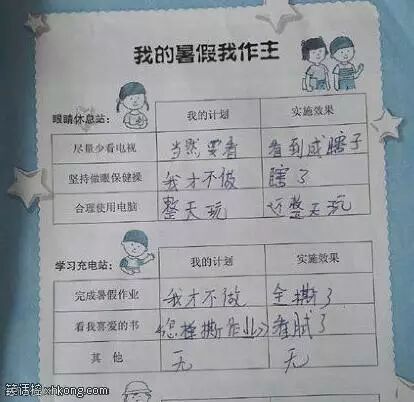 我的暑假我作主
眼睛休息站： 我的计划 实施效果
尽量少看电视 当然要看 看到成瞎子
坚持做眼保健操 我才不做 瞎了
合理使用电脑 整天玩 还整天玩
学习充电站： 我的计划 实施效果
完成暑假作业 我才不做 全撕了
看我喜爱的书 《怎样撕作业》 看腻了
其他 无 无
笑话粉xhkong.com